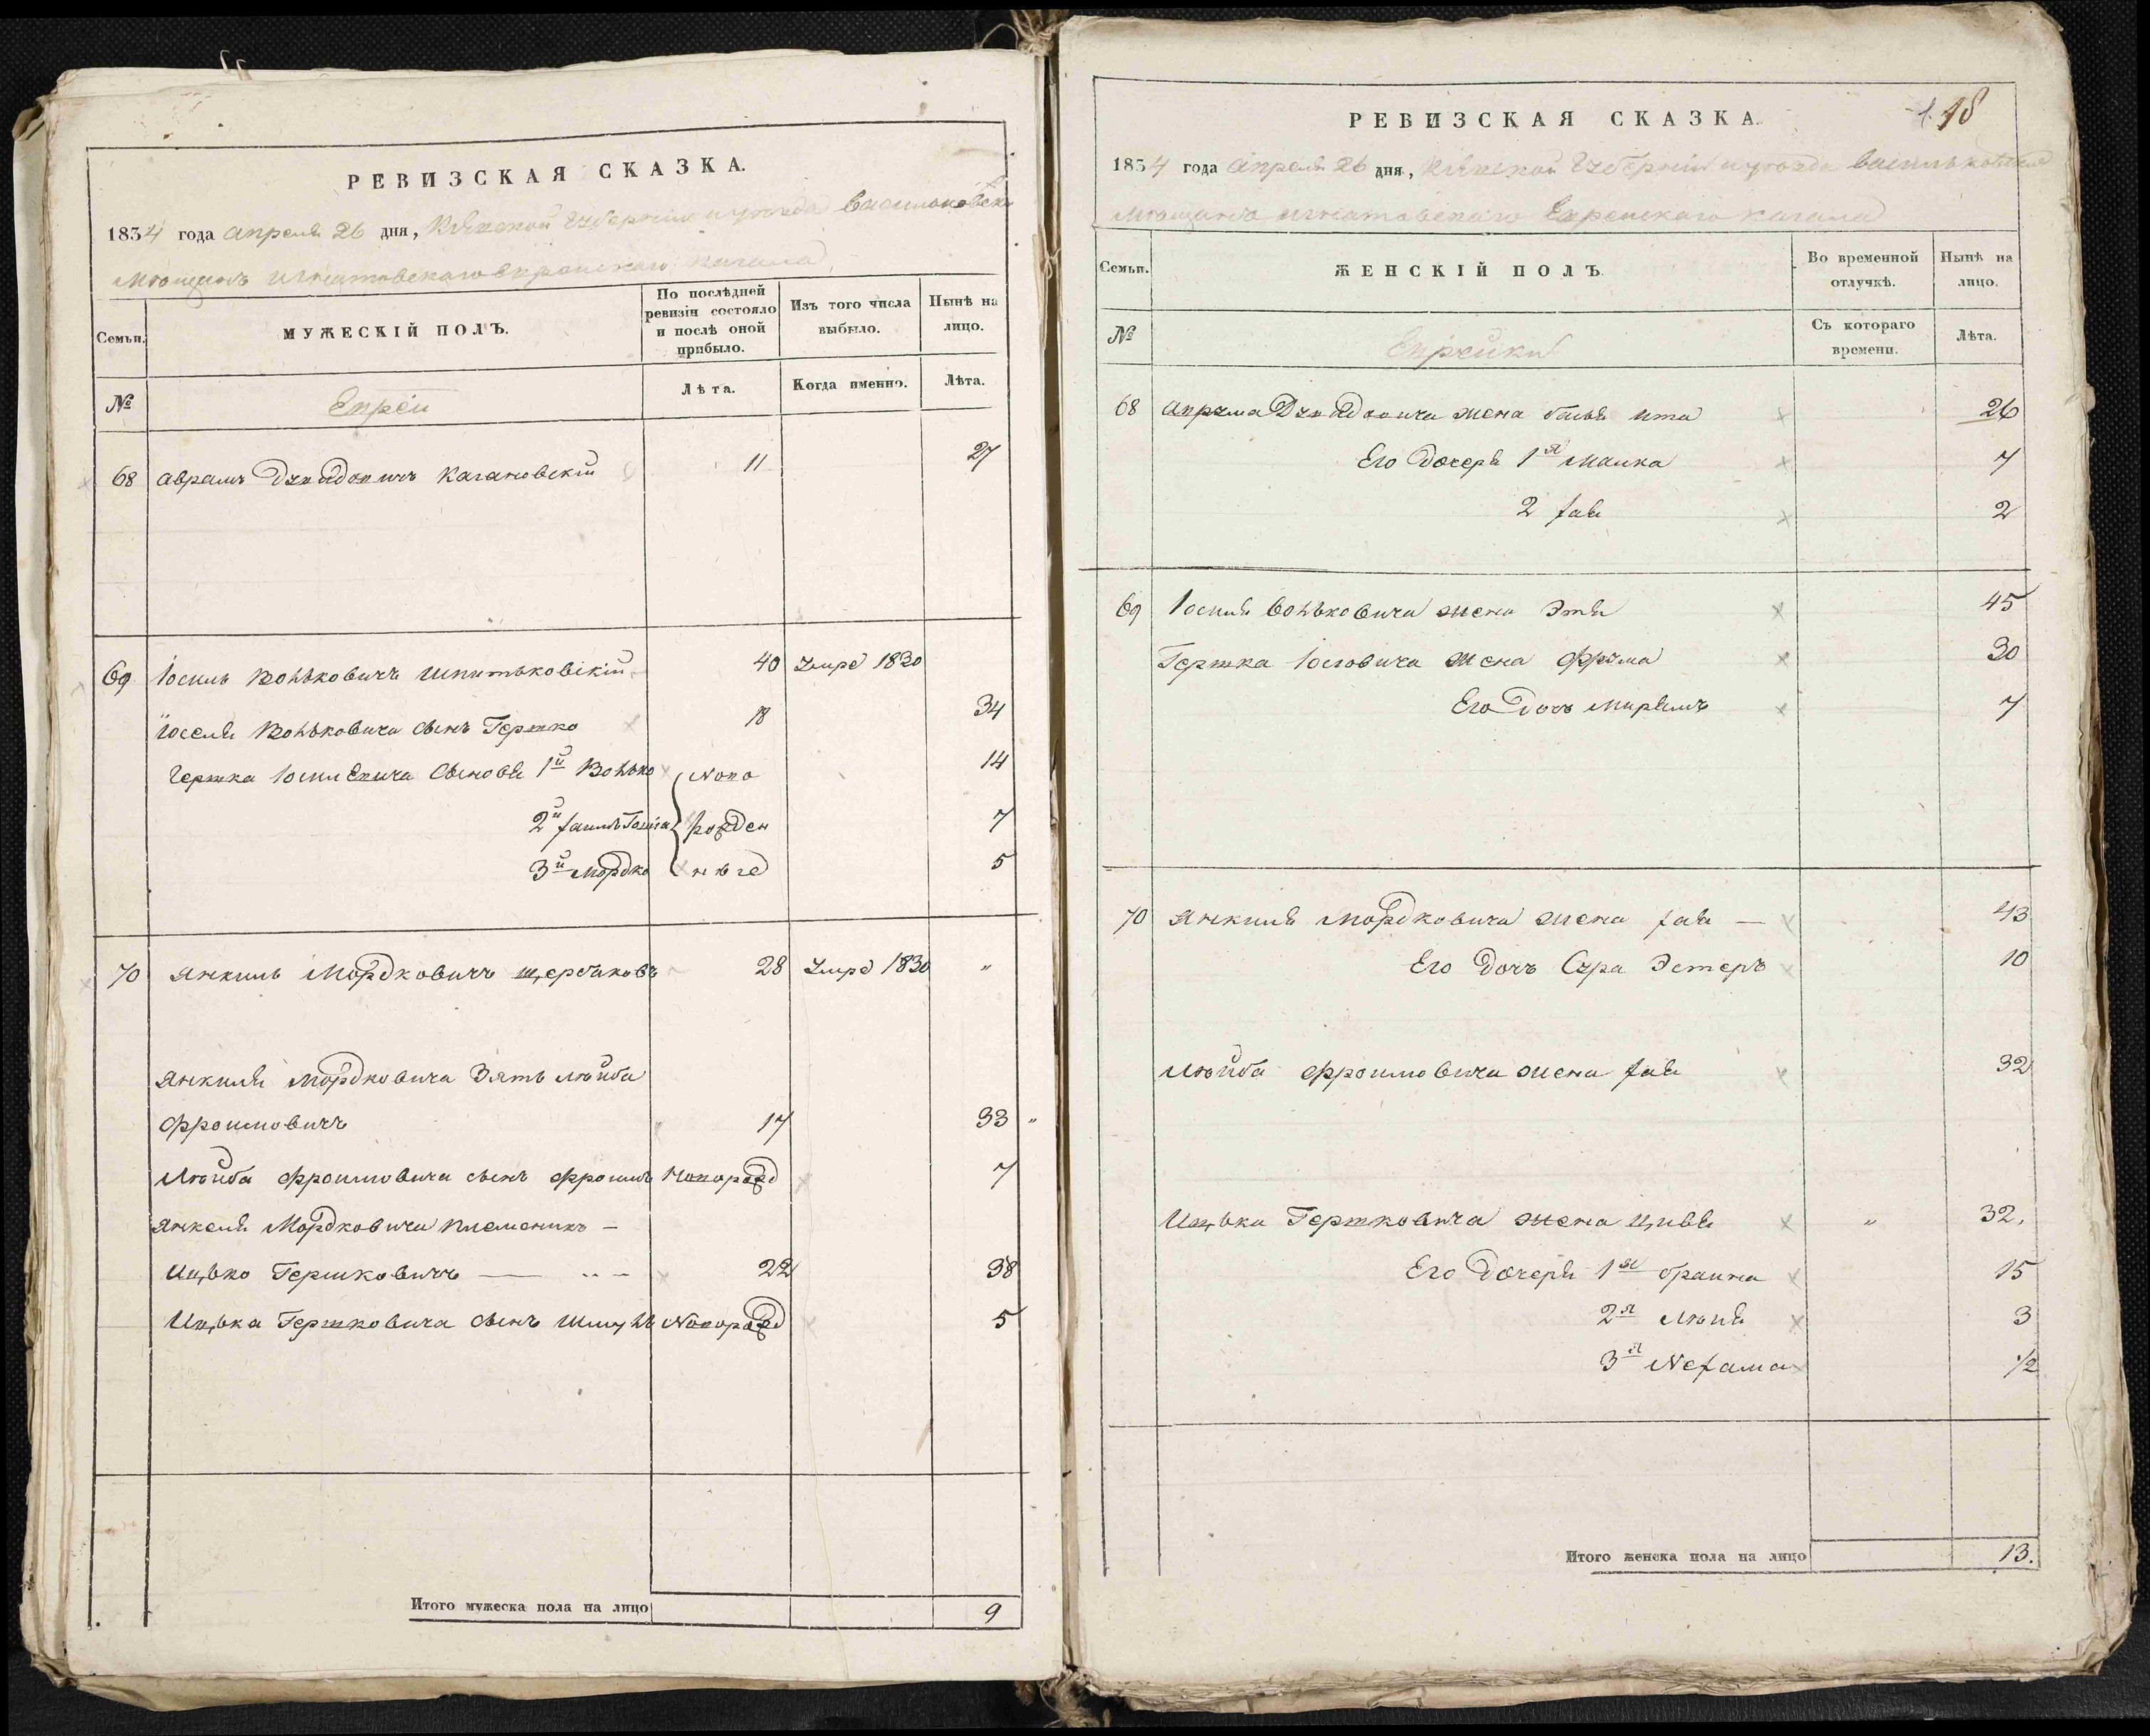 РЕВИЗСКАЯ СКАЗКА.
1834 года Апреля 26 дня, Кіевской Губерніи и уѣзда Васильковска
Мѣщанъ Игнатовскаго Еврейскаго Кагала
Семьи.
МУЖЕСКІЙ ПОЛЪ.
По послѣдней ревизіи состояло и послѣ оной прибыло.
Изъ того числа выбыло.
Нынѣ на лицо.
№
Евреи
Лѣта.
Когда именно.
Лѣта.
68 Аврамъ Дувидовичъ Кагановскій 11 27
69 Іосиль Волько­вичъ Шпитьковскій 40 Умре 1830
Іоселя Вольковича сынъ Гершко 18 34
Гершка Іосилевича сыновья 1й Волько Ново 14
2й рожден 7
3й Мордко ные 5
70 Янкиль Мордковичъ Щербаковъ 28 Умре 1830 "
Янкиля Мордковича Зять Лейба
Фроимовичъ 17 33 "
Лейба Фроимовича сынъ Фроимъ Новорожд 7
Янкеля Мордковича племеникъ —
Ицько Гершковичъ — 22 38
Ицька Гершковича сынъ Шмуль Новорожд 5
Итого мужеска пола на лицо 9
РЕВИЗСКАЯ СКАЗКА.
18
1834 года Апреля 26 дня, Кіевской Губерніи и уѣзда Васильковска
Мѣщанъ Игнатовскаго Еврейскаго Кагала
Семьи.
ЖЕНСКІЙ ПОЛЪ.
Во временной отлучкѣ.
Нынѣ на лицо.
№
Еврейки
Съ котораго времени.
Лѣта.
68 Аврума Дувидовича жена Бася Ита 26
Его Дочери 1я Малка 7
2 Хая 2
69 Іосиля Вольковича жена Этя 45
Гершка Іосовича жена Фрума 30
Его Дочь Мирямъ 7
70 Янкиля Мордковича жена Хая — 43
Его Дочь Сура Эстеръ 10
Лейба Фроимовича жена Хая 32
Ицька Гершковича жена Цивья " 32.
Его Дочери 1я Браина 15
2я Лея 3
3я Нехама 1/2
Итого женска пола на лицо 13.